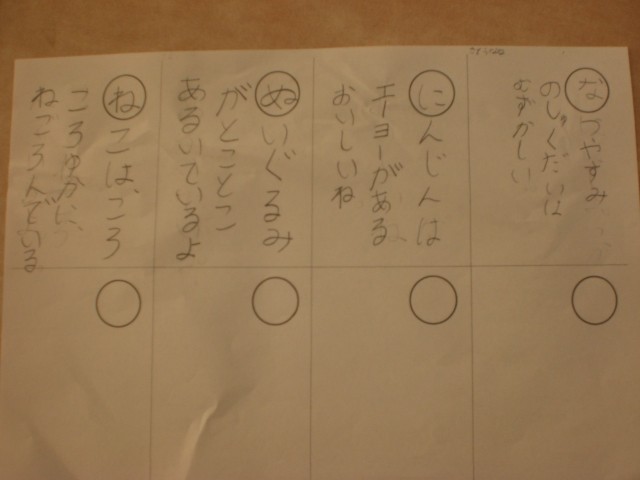 なつやすみ
のしゅくだいは
むずかしい
にんじんは
エーヨーがある
おいしいね
ぬいぐるみ
がとことこ
あるいているよ
ねこは、ころ
ころゆかに、
ねころんでいる